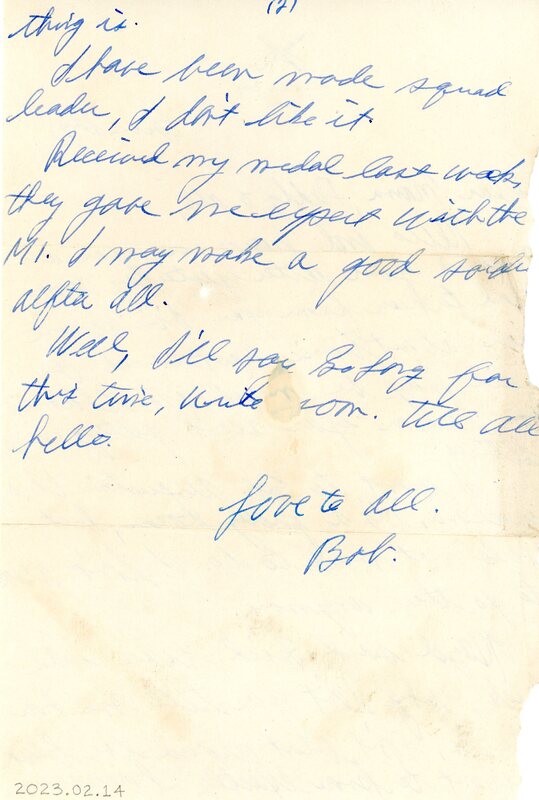 (2)
thing is.
I have been made squad
leader, I don't like it.
Received my medal last week,
they gave me expert with the
M1. I may make a good soldier
alfter all.
Well, I'll say So Long for
this time, write soon. Tell all
hello.
Love to all.
Bob.
2023.02.14